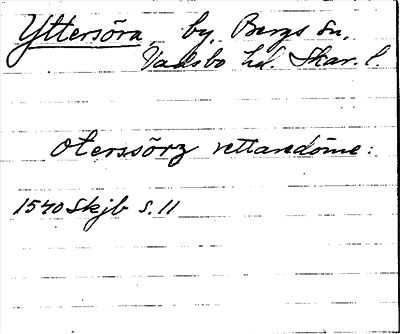 Yttersöra, by, Bergs sn,
Vadsbo hd. Skar. l.
oterssörz rettandöme:
1540 Skjb s. 11